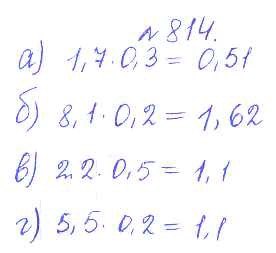 № 814.
а) 1,7 · 0,3 = 0,51
б) 8,1 · 0,2 = 1,62
в) 2,2 · 0,5 = 1,1
г) 5,5 · 0,2 = 1,1